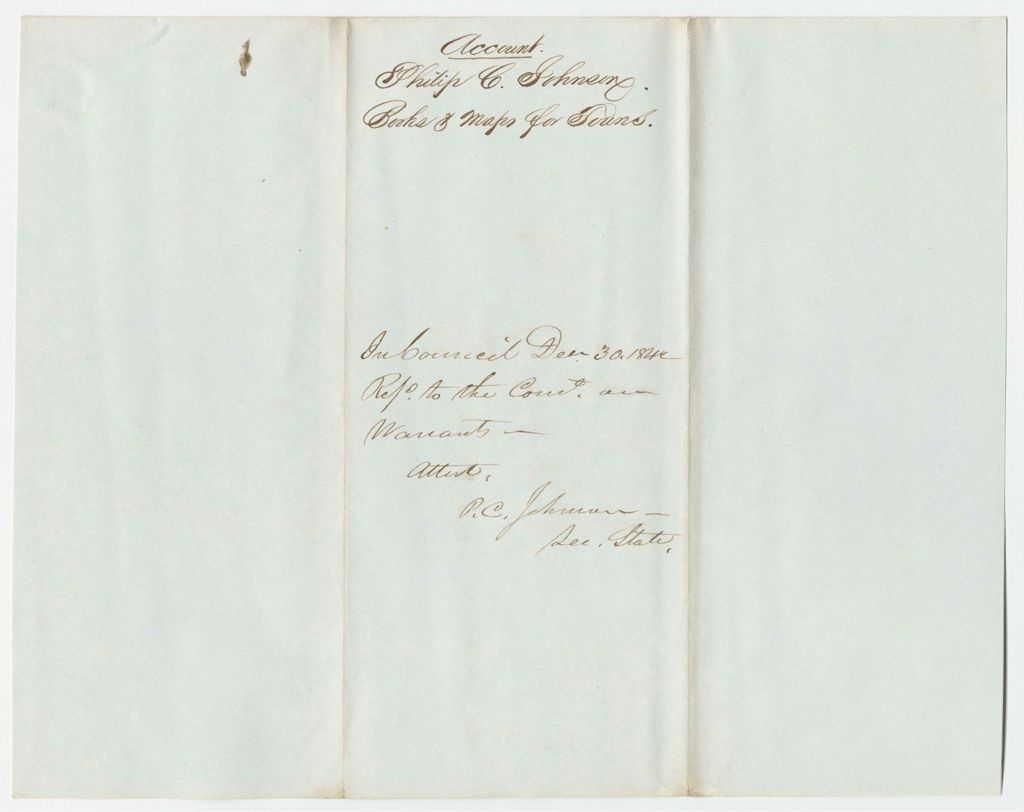 Account.
Philip C. Johnson.
Books & Maps for Towns.
In Council Dec 30. 184
Refd. to the Comee. on
Warrants —
Attest,
P.C. Johnson —
Sec. State.